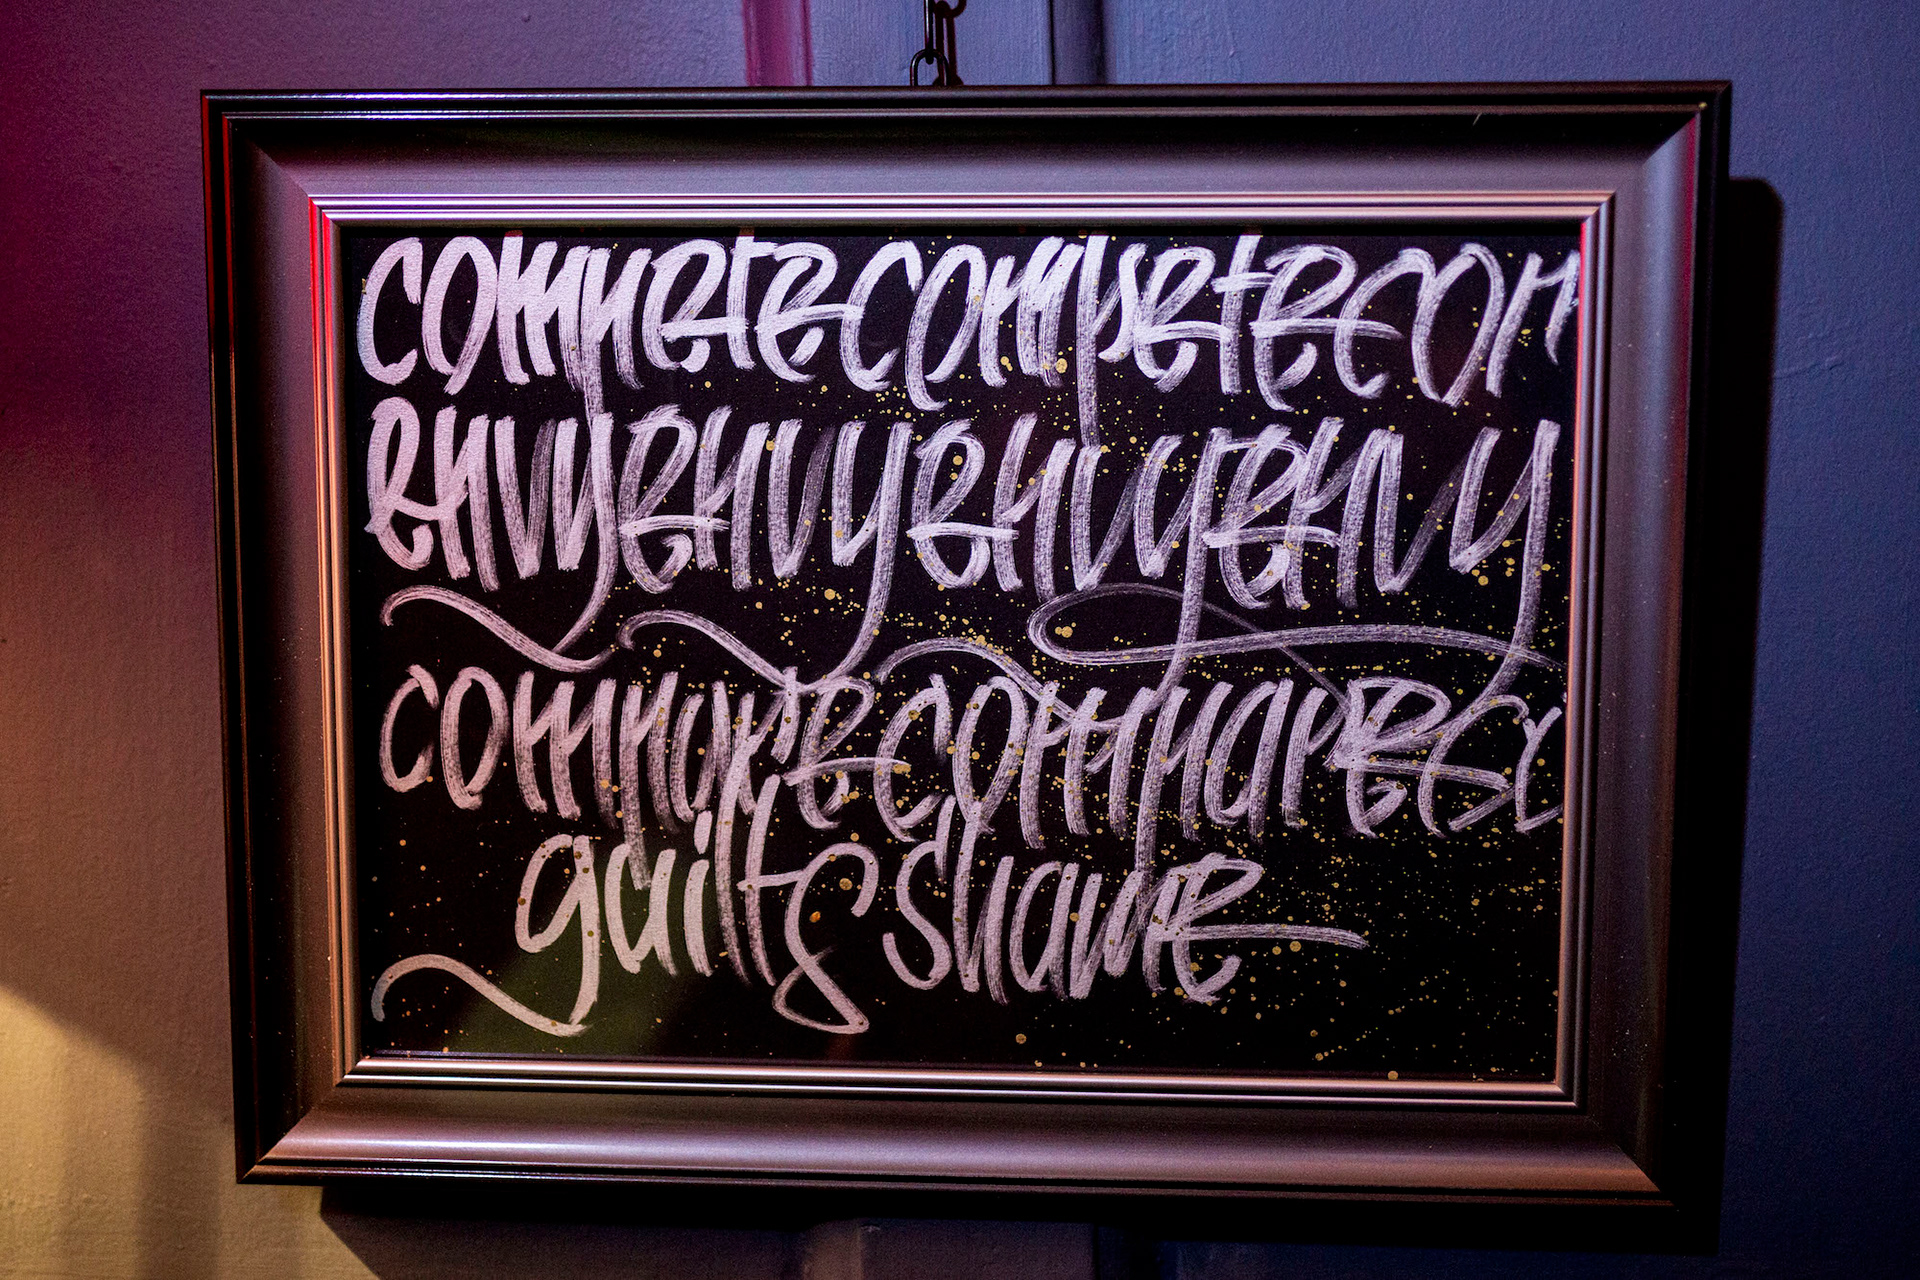 competecompetecom
envyenvyenvyenvy
comparecomparecc
guilt&shame